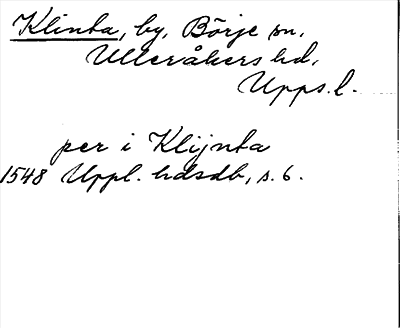 Klinta, by, Börje sn,
Ulleråkers hd,
Upps. l.
per i Klijnta
1548 Uppl. hdsdb, s. 6.